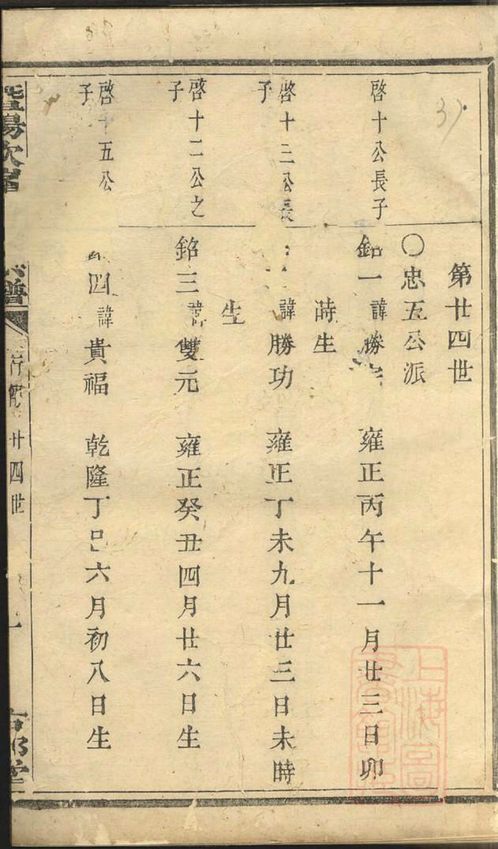 第廿四世
〇忠五公派
啓十公長子
銘一諱勝 雍正丙午十一月廿三日卯
時生
啓十三公長
子
諱勝功 雍正丁未九月廿三日未時
生
啓十二公之
子
銘三諱雙元 雍正癸丑四月廿六日生
啓十五公
子
四諱貴福 乾隆丁巳六月初八日生
暨陽次峯
宗譜
行
廿四世
一
堂